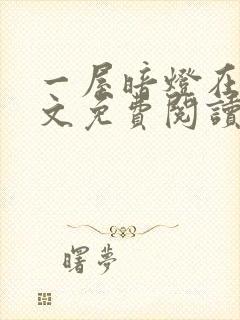 一屋暗燈在
文免費閱讀
曙夢